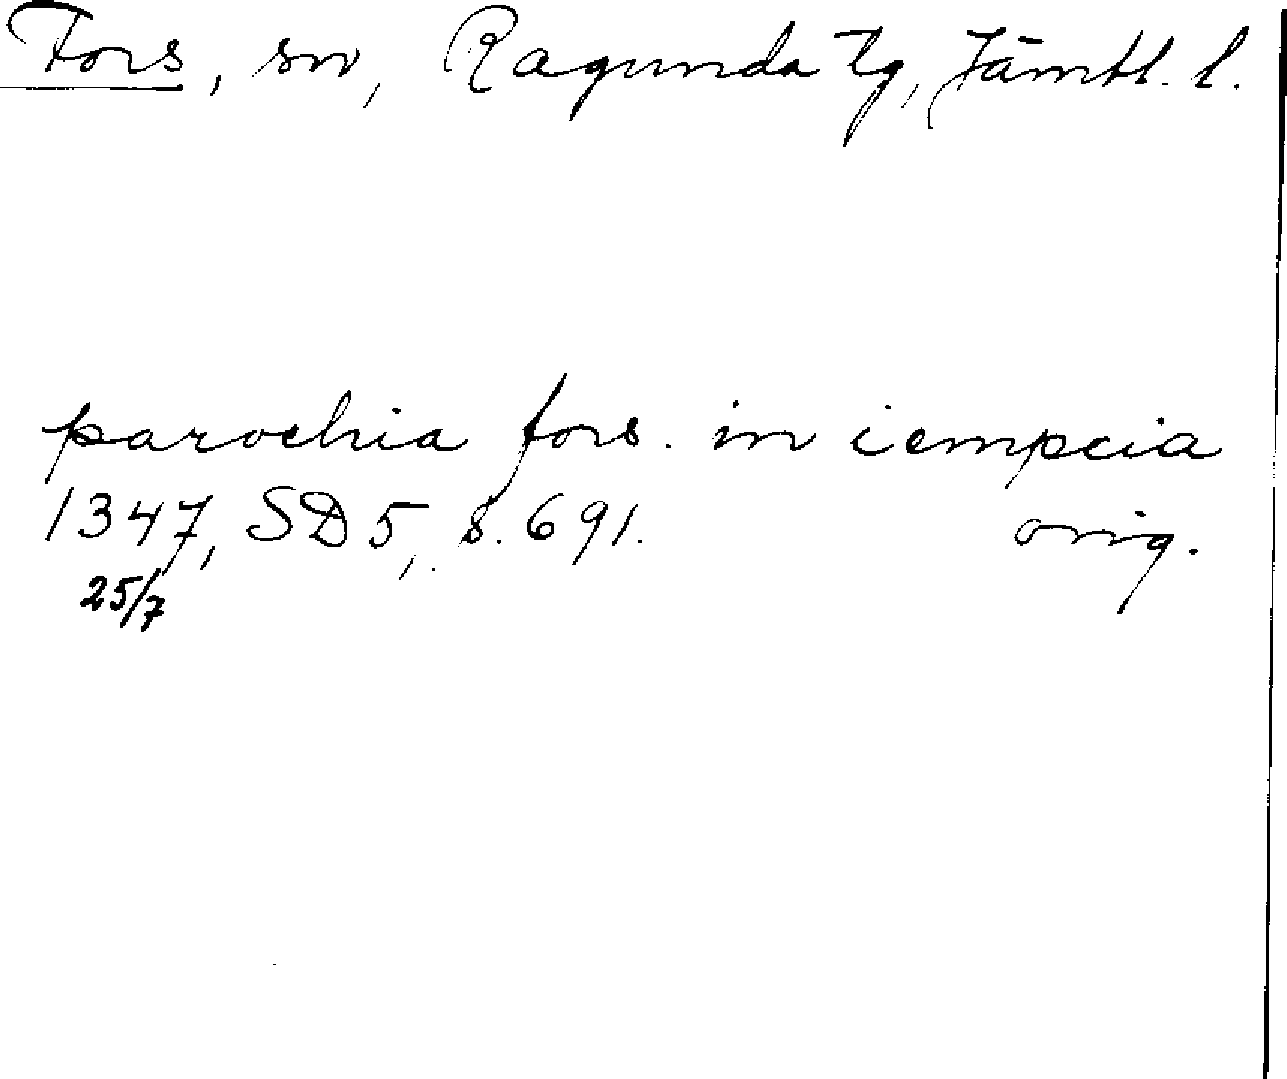 Fors, sn, Ragunda tg, Jämtl. l.
parochia fors. in iempcia
1347, SD 5, s. 691. orig.
25/7